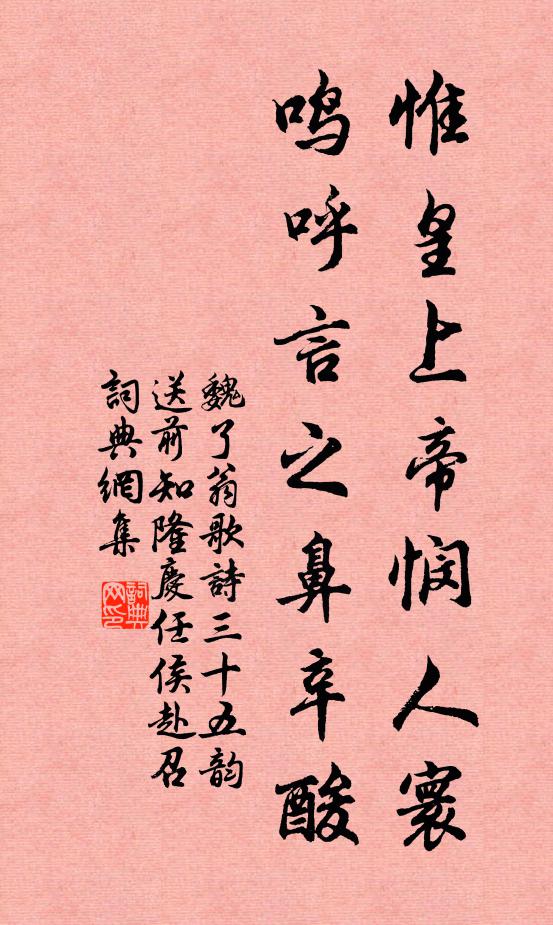 惟皇上帝悯人寰
鸣呼言之鼻辛酸
魏了翁歌詩三十五韵
送前知隆慶任侯赴召
詞典網集
詞典網印